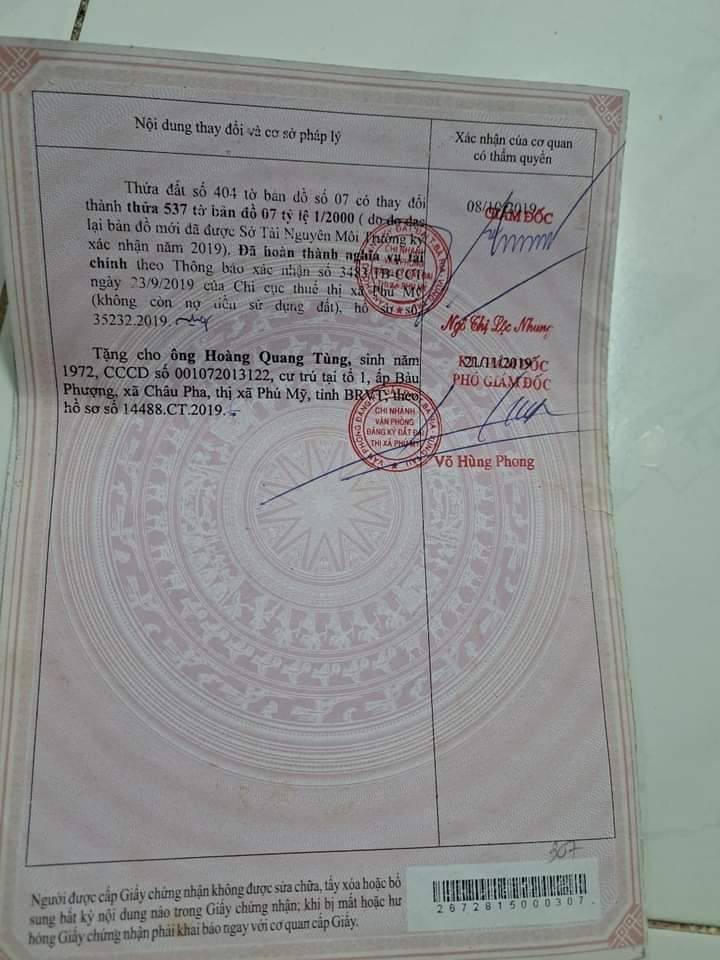 Nội dung thay đổi và cơ sở pháp lý
Xác nhận của cơ quan
có thẩm quyền
Thửa đất số 404 tờ bản đồ số 07 có thay đổi
thành thửa 537 tờ bản đồ 07 tỷ lệ 1/2000 ( do đo đạc
lại bản đồ mới đã được Sở Tài Nguyên Môi Trường ký
xác nhận năm 2019). Đã hoàn thành nghĩa vụ tài
chính theo Thông báo xác nhận số 3483/TB-CCT
ngày 23/9/2019 của Chi cục thuế thị xã Phú Mỹ
(không còn nợ tiền sử dụng đất), hồ sơ số
35232.2019.
08/10/2019
GIÁM ĐỐC
Ngô Thị Lệc Nhung
Tặng cho ông Hoàng Quang Tùng, sinh năm
1972, CCCD số 001072013122, cư trú tại tổ 1, ấp Bàu
Phượng, xã Châu Pha, thị xã Phú Mỹ, tỉnh BRVT, theo
hồ sơ số 14488.CT.2019.
21/11/2019
PHÓ GIÁM ĐỐC
CHI NHÁNH
VĂN PHÒNG
ĐĂNG KÝ ĐẤT ĐAI
THỊ XÃ PHÚ MỸ
Võ Hùng Phong
307
Người được cấp Giấy chứng nhận không được sửa chữa, tẩy xóa hoặc bổ
sung bất kỳ nội dung nào trong Giấy chứng nhận; khi bị mất hoặc hư
hỏng Giấy chứng nhận phải khai báo ngay với cơ quan cấp Giấy.
2672815000307.